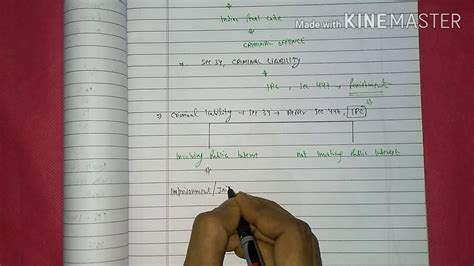 Made with KINEMASTER
Indian Penal Code
CRIMINAL OFFENCE
Sec 34, CRIMINAL LIABILITY
IPC, Sec 447, Punishment
Criminal liability → Sec 34 → Sec 447, IPC
Involving Public Interest not Involving Public Interest
Imprisonment /